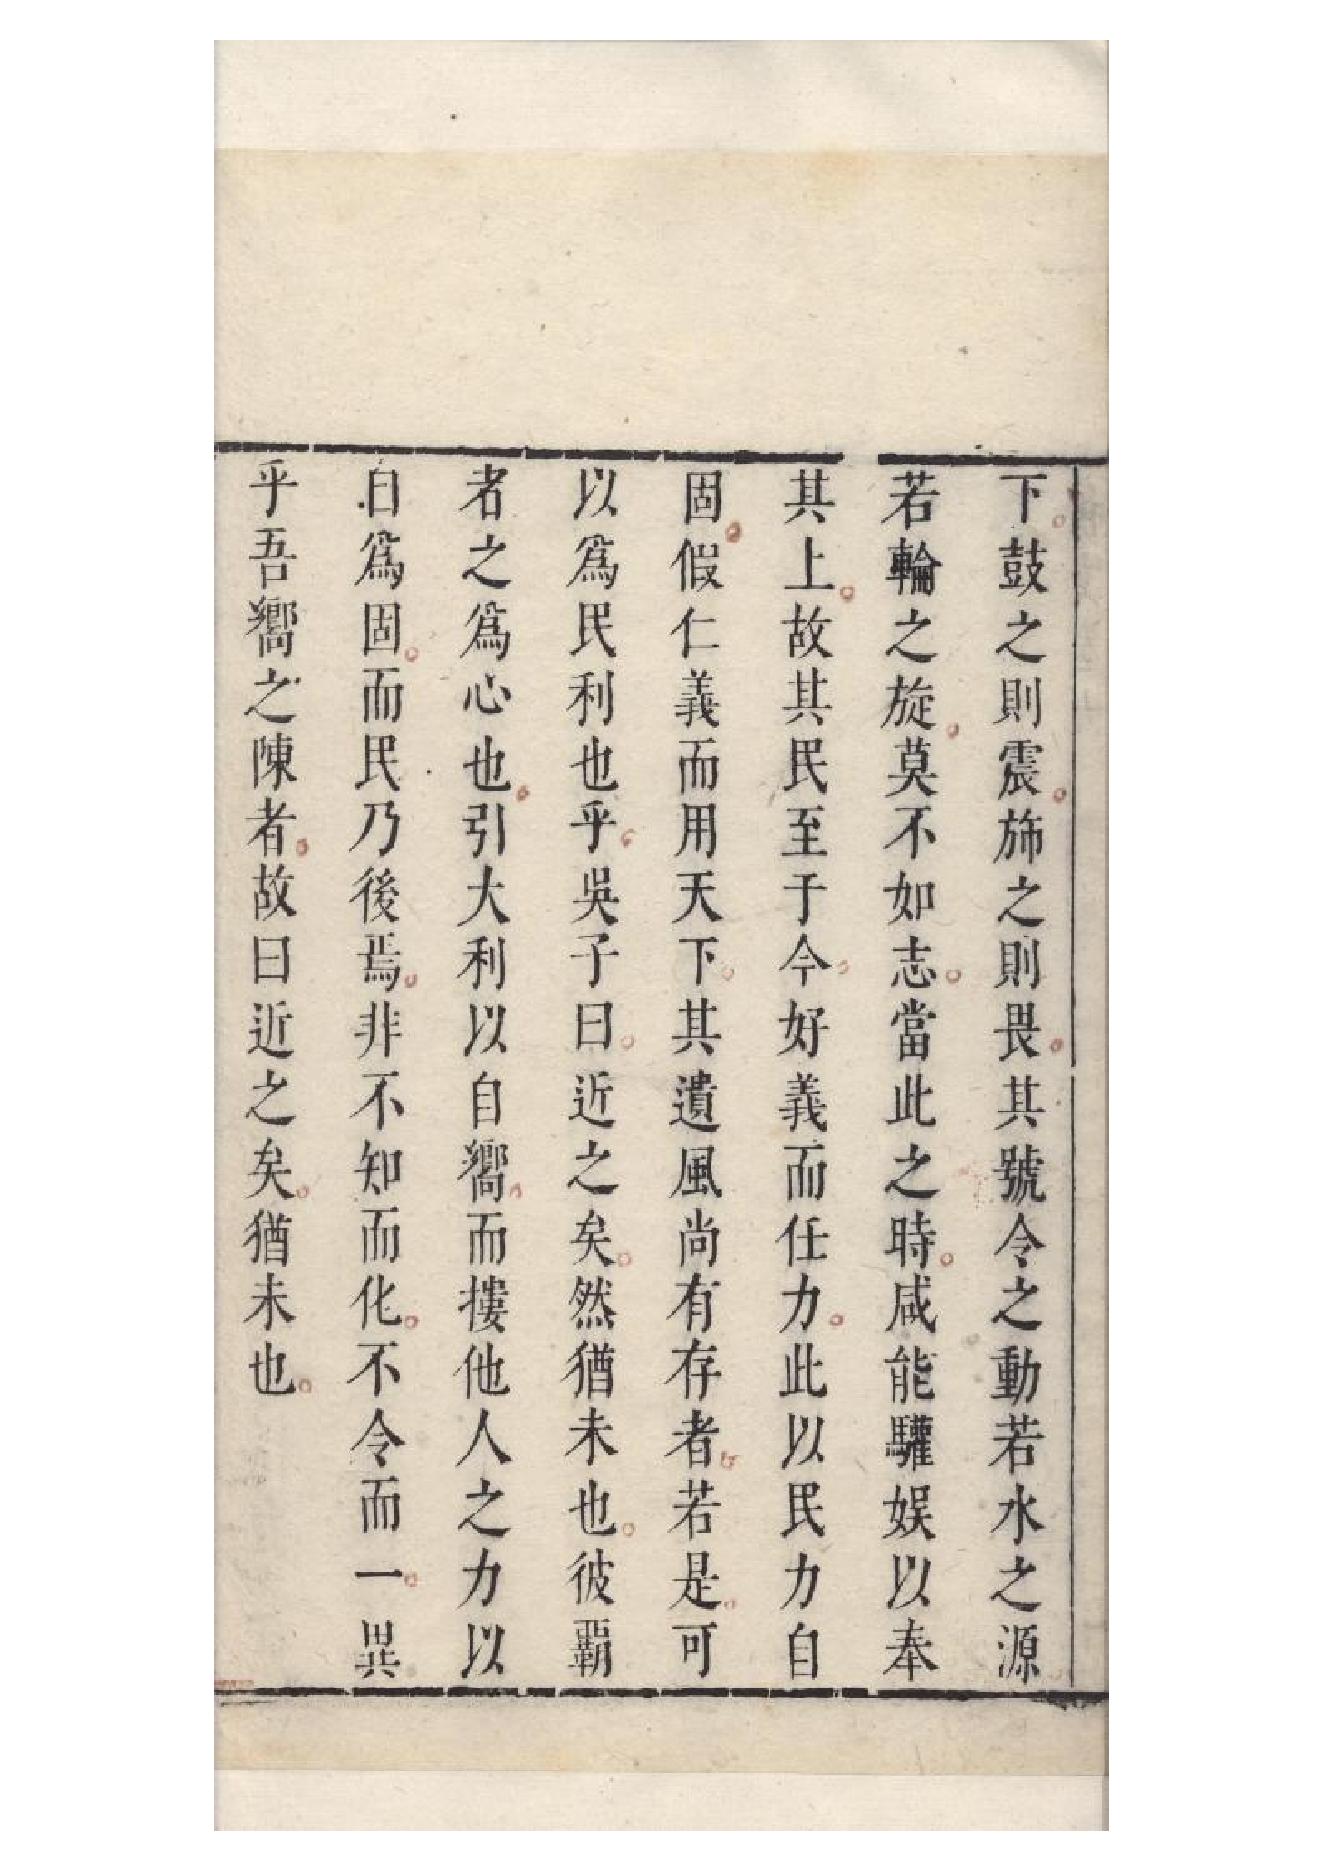 下鼓之則震施之則畏其號令之動若水之源
若輪之旋莫不如志當此之時咸能驩娱以奉
其上故其民至于今好義而任力此以民力自
固假仁義而用天下其遺風尚有存者若是可
以爲民利也乎吳子曰近之矣然猶未也彼覇
者之爲心也引大利以自嚮而摟他人之力以
自爲固而民乃後焉非不知而化不令而一異
乎吾嚮之陳者故曰近之矣猶未也